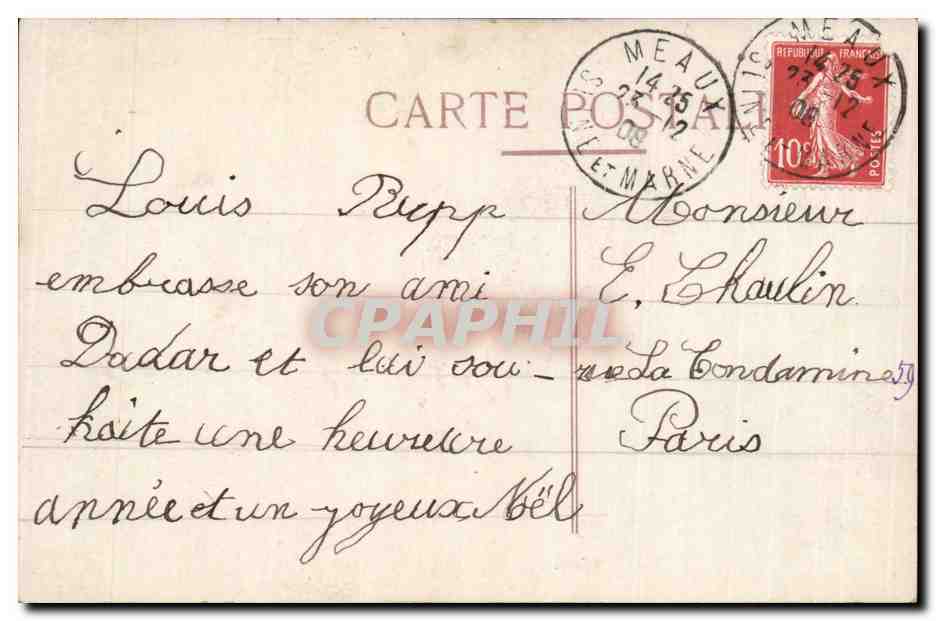 CARTE POSTALE
MEAUX
14 25
23 12
08
SEINE ET MARNE
MEAUX
14 25
23 12
08
REPUBLIQUE FRANÇAISE
10c
POSTES
Louis Rupp
embrasse son ami
Dadar et lui sou-
haite une heureure
année et un joyeux Noël
Monsieur
E. Chaulin
rue La Condamine 59
Paris
CPAPHIL